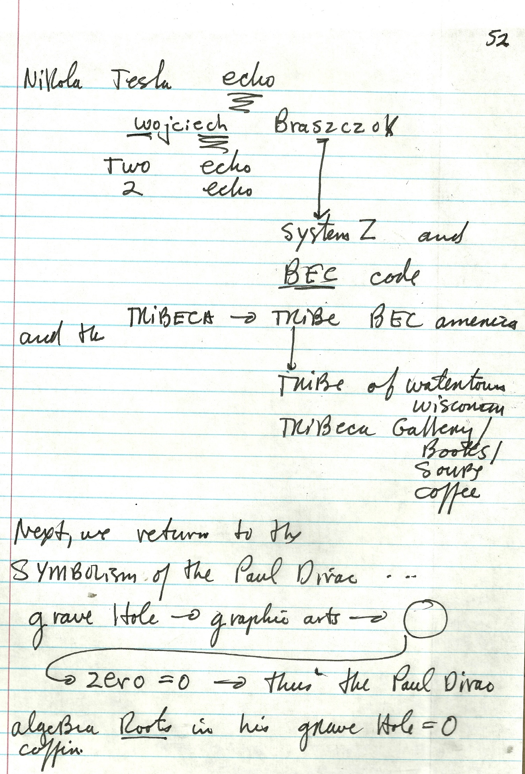 52
Nikola Tesla echo
Wojciech Braszczok
Two echo
2 echo
System Z and
BEC code
and the TRIBECA → TRIBe BEC america
TRIBe of watertown
wisconsin
TRIBeca Gallery/
Books/
Soups
coffee
Next, we return to the
SYMBOLISM of the Paul Dirac ...
grave Hole → graphic arts →
→ zero = 0 → thus the Paul Dirac
algeBra Roots in his grave Hole = 0
coffin